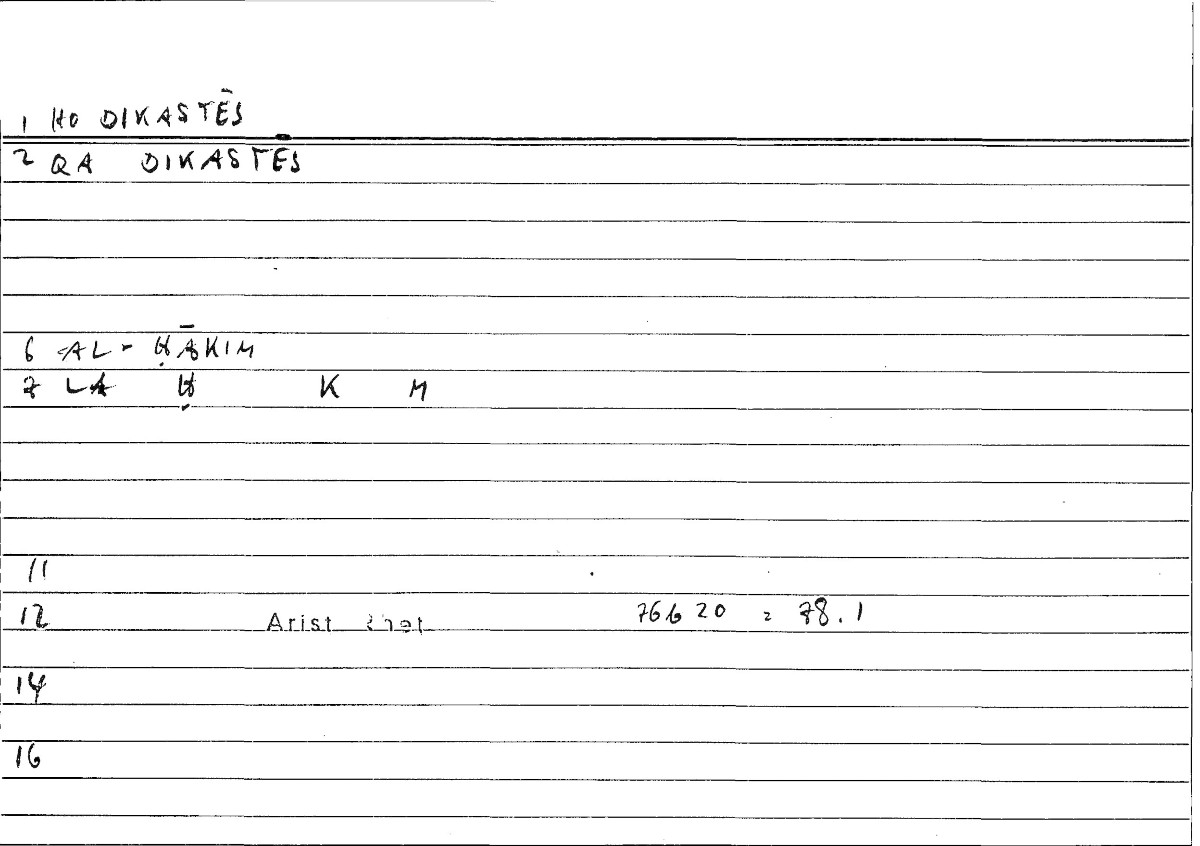 1 HO DIKASTĒS
2 QA DIKASTĒS
6 AL - ḤĀKIM
7 LA Ḥ K M
11
12 Arist Rhet 76b20 = 78.1
14
16